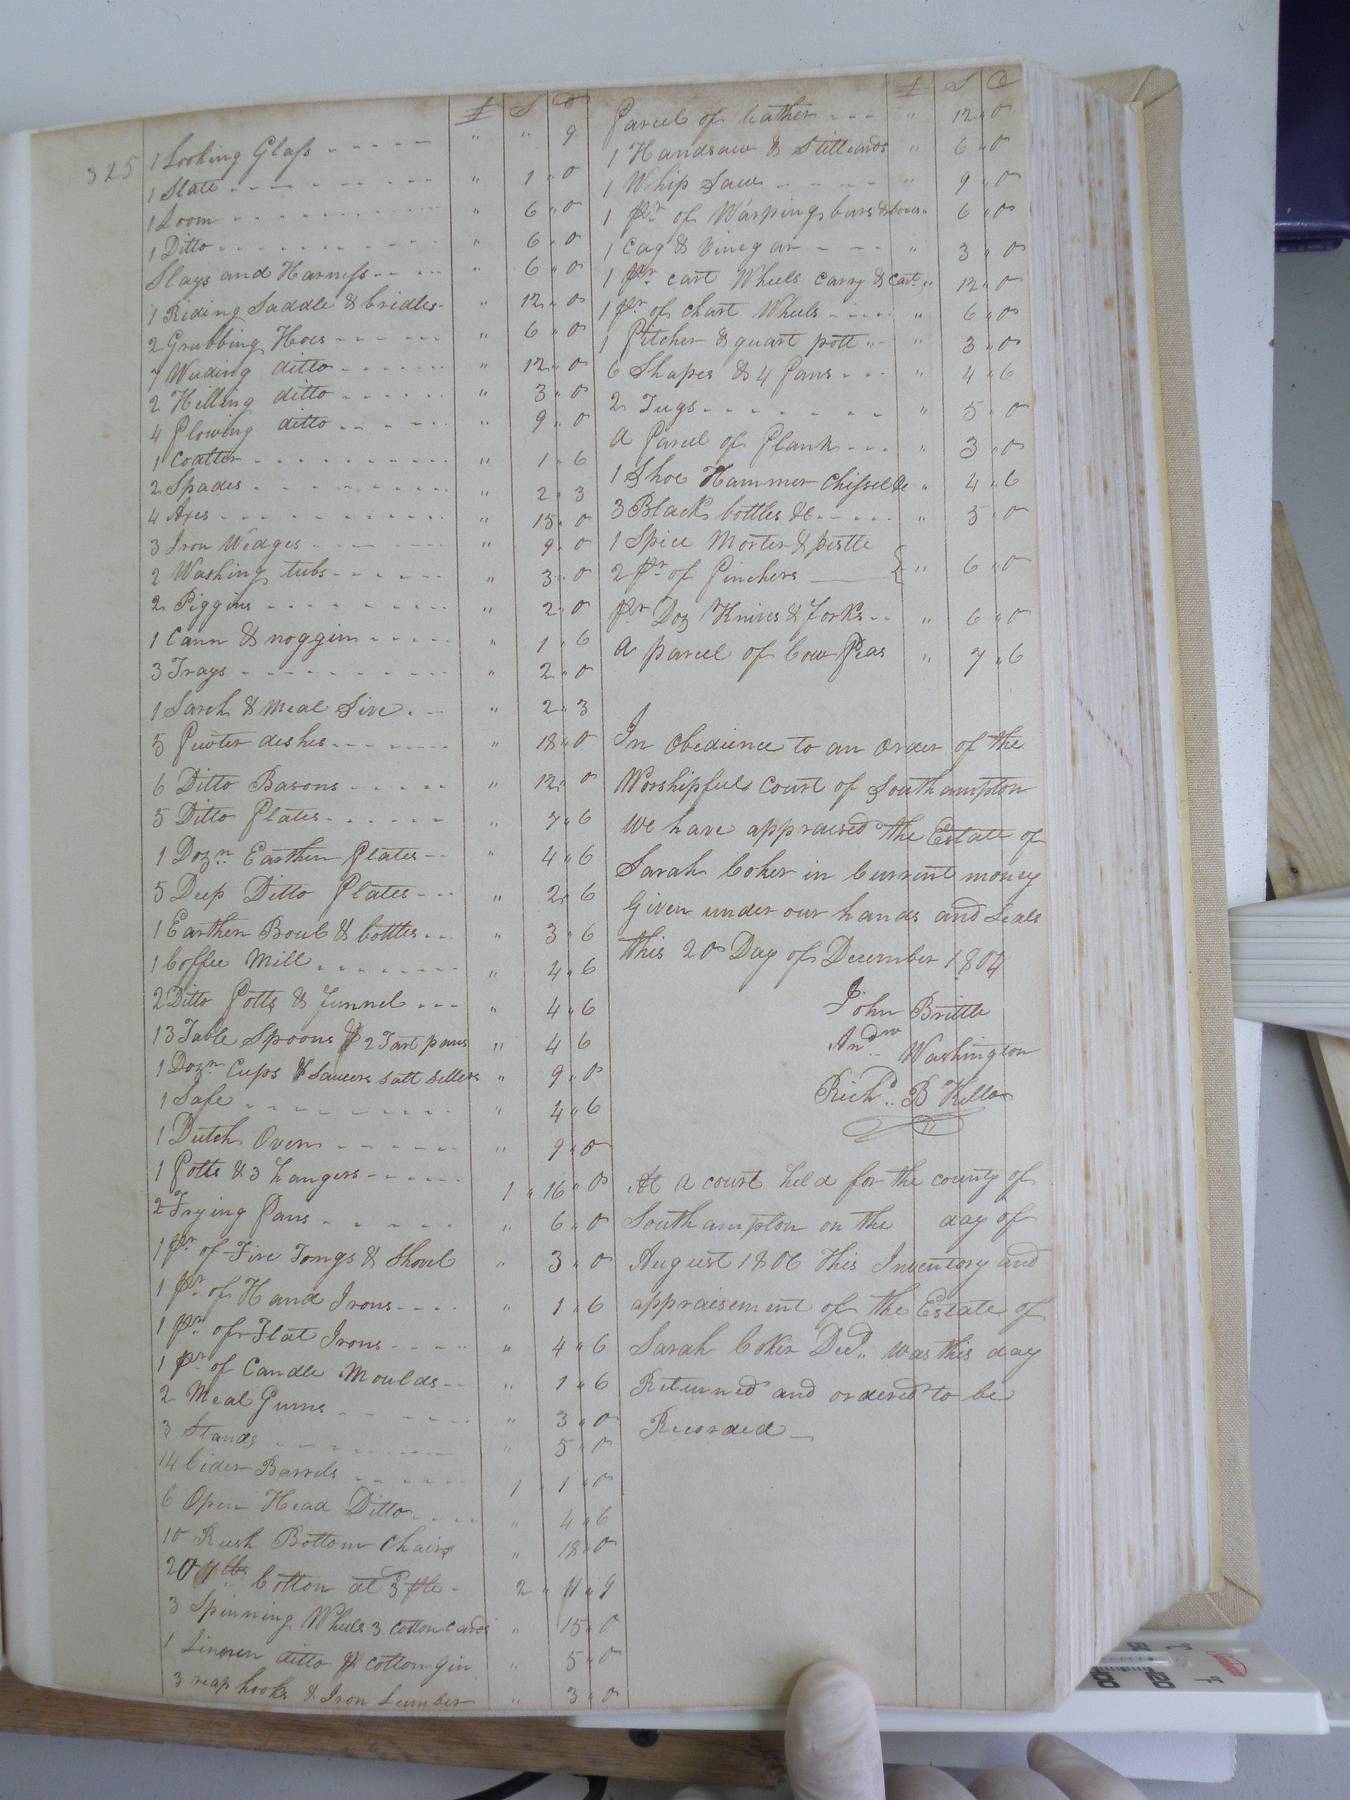 325
£ S D
1 Looking Glass - - - - - " " 9
1 Slate - - - - " 1 " 0
1 Loom - - - - " 6 " 0
1 Ditto - - - - " 6 " 0
Slays and Harness - - - - " 6 " 0
1 Riding Saddle & bridles - " 12 " 0
2 Grubbing Hoes - - - - " 6 " 0
7 Weeding ditto - - - - " 12 " 0
2 Hilling ditto - - - - " 3 " 0
4 Plowing ditto - - - - " 9 " 0
1 Coalter - - - - " 1 " 6
2 Spades - - - - " 2 " 3
4 Axes - - - - " 15 " 0
3 Iron Wedges - - - - " 9 " 0
2 Washing tubs - - - - " 3 " 0
2 Piggins - - - - " 2 " 0
1 Cann & noggin - - - - " 1 " 6
3 Trays - - - - " 2 " 0
1 Sarch & meal Sive - - " 2 " 3
5 Pewter deshes - - - - " 18 " 0
6 Ditto Basons - - - - " 12 " 0
5 Ditto Plates - - - - " 7 " 6
1 Dozn Earthen Plates - - " 4 " 6
5 Deep Ditto Plates - - - " 2 " 6
1 Earthen Boul & bottles - - " 3 " 6
1 Coffee Mill - - - - " 4 " 6
2 Ditto Potts & Funnel - - - " 4 " 6
13 Table Spoons & 2 Tart pans " 4 6
1 Dozn Cups & Saucers salt sellers " 9 " 0
1 Safe - - - - " 4 " 6
1 Dutch Oven - - - - " 9 " 0
1 Potts & 3 hangers - - - - 1 " 16 " 0
2 Frying Pans - - - - " 6 " 0
1 pr of Fire Tongs & Shovel " 3 " 0
1 pr of Hand Irons - - - - " 1 " 6
1 pr of Flat Irons - - - - " 4 " 6
1 pr of Candle Moulds - - " 1 " 6
2 Meal Gums - - - - " 3 " 0
3 Stands - - - - " 5 " 0
14 Cider Barrels - - - - 1 " 1 " 0
6 Open Head Ditto - - - - " 4 " 6
10 Rush Bottom Chairs " 18 " 0
20 lbs Cotton at 3 - 2 " 11 " 9
3 Spinning Wheels 3 cotton cards " 15 " 0
1 Linnen ditto & cotton Gin " 5 " 0
3 reap hooks & Iron Lumber " 3 " 0
£ S D
Parcel of leather - - - " 12 " 0
1 Handsaw & Stilleards " 6 " 0
1 Whip Saw - - - - " 9 " 0
1 pr of Warping bars & " 6 " 0
1 Cag & Vinegar - - - - " 3 " 0
1 pr cart Wheels Carry & Cart " 12 " 0
1 pr of chart Wheels - - - - " 6 " 0
1 Pitcher & quart pott - - " 3 " 0
6 Shapes & 4 Pans - - - " 4 " 6
2 Jugs - - - - " 5 " 0
A Parcel of Plank - - - " 3 " 0
1 Shoe Hammer Chissel &c " 4 " 6
3 Black bottles &c - - - - " 5 " 0
1 Spice Morter & pestle
2 pr of Pinchers " 6 " 0
pr Doz Knives & Forks - - " 6 " 0
A parcel of Cow Peas " 7 " 6
In Obedience to an order of the
Worshipfull Court of Southampton
We have appraised the Estate of
Sarah Coker in Current money
Given under our hands and Seals
this 20 Day of December 1804
John Brittle
Andw Washington
Richd. B Kello
At A court held for the county of
Southampton on the day of
August 1806 This Inventory and
appraisement of the Estate of
Sarah Coker Decd. was this day
Returned and ordered to be
Recorded